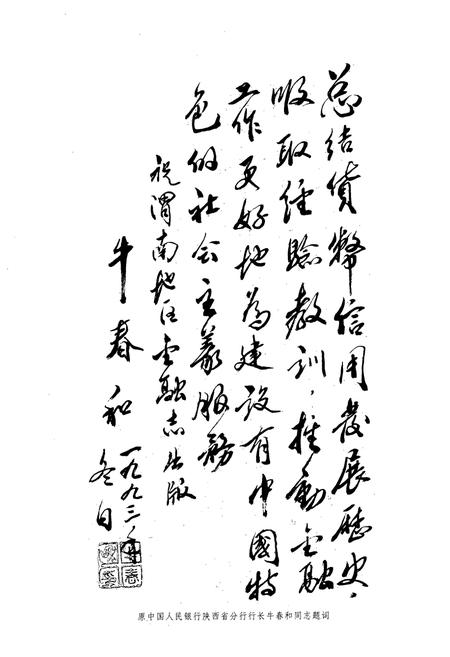 总结货幣信用发展歷史、
吸取经驗教训，推動金融
工作更好地為建设有中國特
色的社会主義服務
祝渭南地区金融志出版
牛春和
一九九三年
冬日
原中国人民银行陕西省分行行长牛春和同志题词